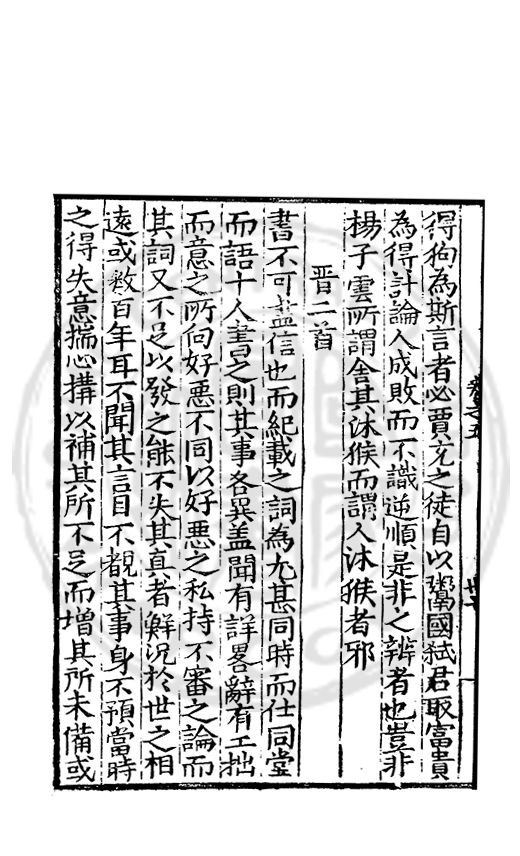 卷之五
廿一
得狗為斯言者必賈充之徒自以鬻國弒君取富貴
為得計論人成敗而不識逆順是非之辨者也豈非
楊子雲所謂舍其沐猴而謂人沐猴者邪
晋二首
書不可盡信也而紀載之詞為尤甚同時而仕同堂
而語十人書之則其事各異盖聞有詳畧辭有工拙
而意之所向好惡不同以好惡之私持不審之論而
其詞又不足以發之能不失其真者鮮况於世之相
遠或數百年耳不聞其言目不覩其事身不預當時
之得失意揣心搆以補其所不足而增其所未備或